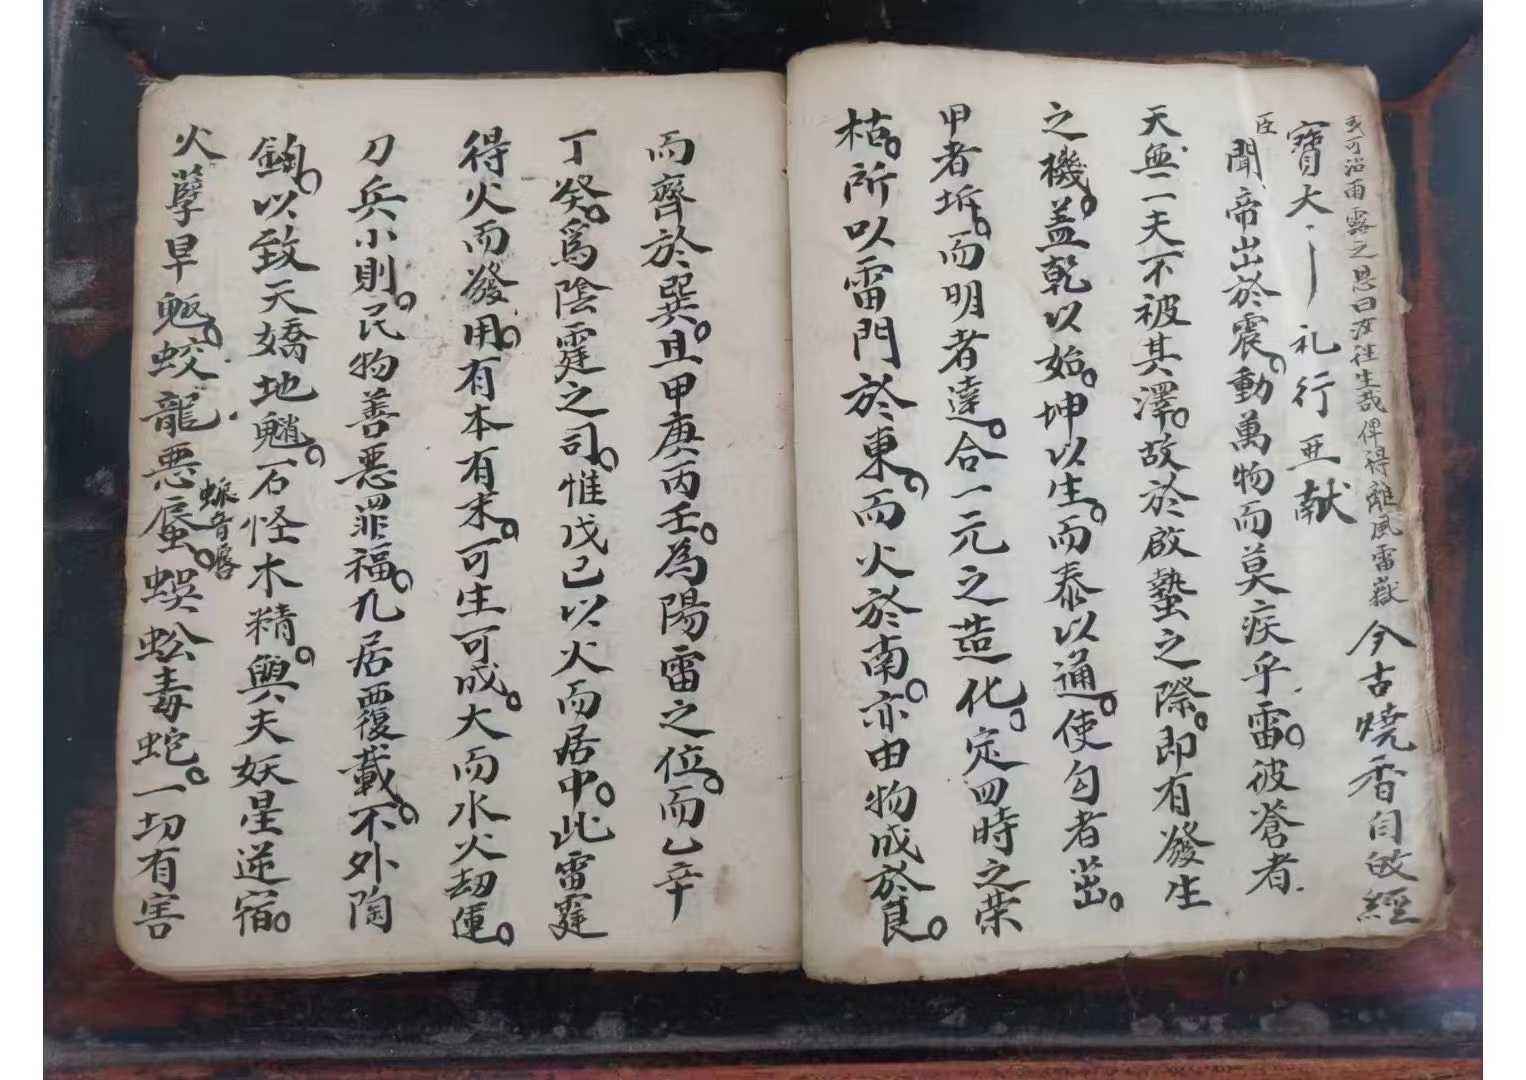 或可沾雨露之恩曰汝往生哉俾得離風雷嶽 今古燒香自啟經
寶大 礼行亜献
臣聞帝出於震。動萬物而莫疾乎雷。彼蒼者
天無一夫不被其澤。故於啟蟄之際。即有發生
之機。盖乾以始。坤以生。而泰以通。使勾者茁。
甲者坼。而明者達。合一元之造化。定四時之荣
枯。所以雷門於東。而火於南。亦由物成於艮。
而齊於巽。且甲庚丙壬。為陽雷之位。而乙辛
丁癸。為陰霆之司。惟戊己以火而居中。此雷霆
得火而發用。有本有末。可生可成。大而水火劫運。
刀兵小則。民物善惡罪福。凡居覆載。不外陶
鈞。以致天嬌地魈。石怪木精。與夫妖星逆宿。
火孽旱魃。蛟龍惡蜃。蜈蚣毒蛇。一切有害
音唇